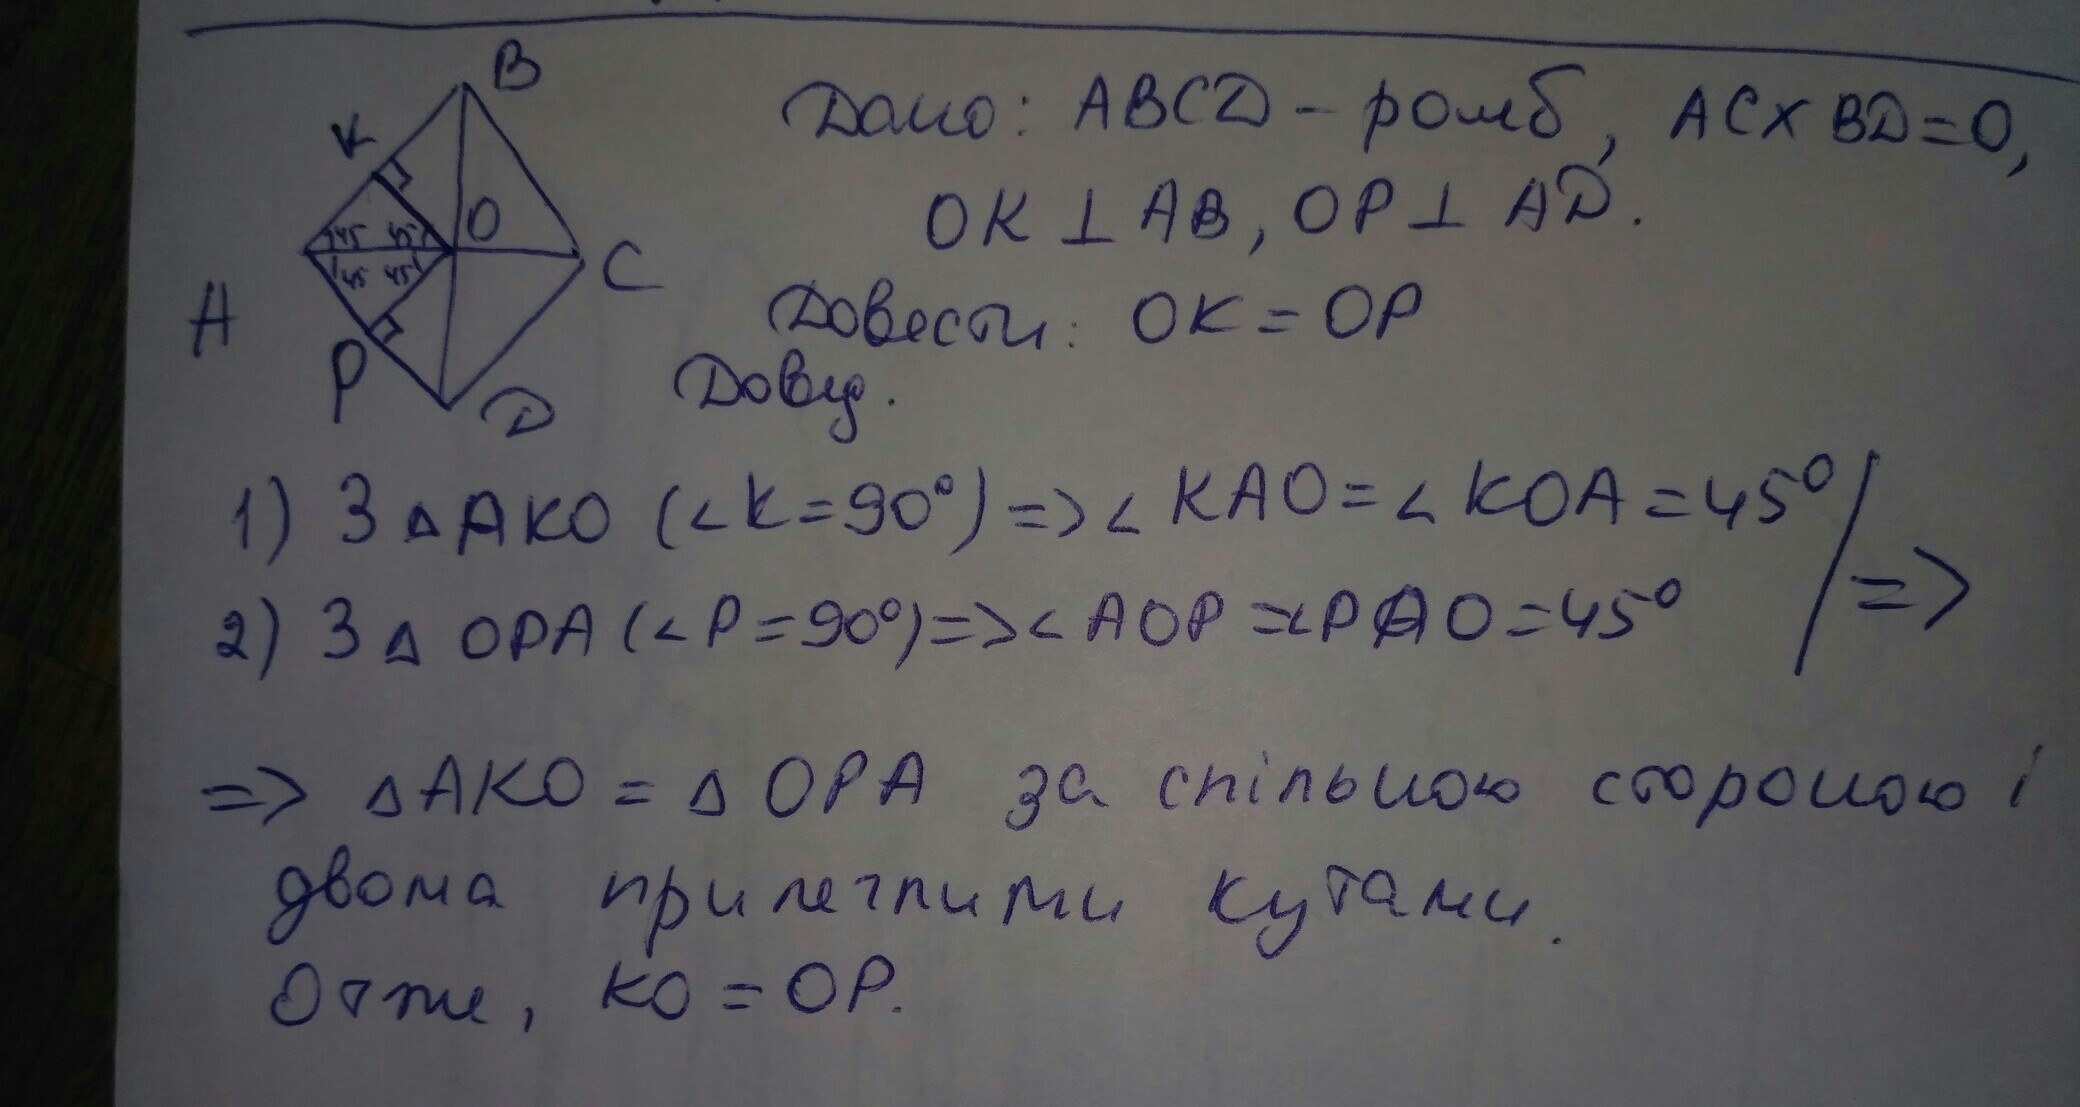 B
K
O
45 45
45 45
A
C
P
D
Дано: ABCD - ромб, AC x BD = O,
OK ⊥ AB, OP ⊥ AD.
Довести: OK = OP
Довед.
1) З △ AKO (∠K=90°) => ∠KAO = ∠KOA = 45° / =>
2) З △ OPA (∠P=90°) => ∠AOP = ∠PAO = 45°
=> △AKO = △OPA за спільною стороною і
двома прилеглими кутами.
Отже, KO = OP.